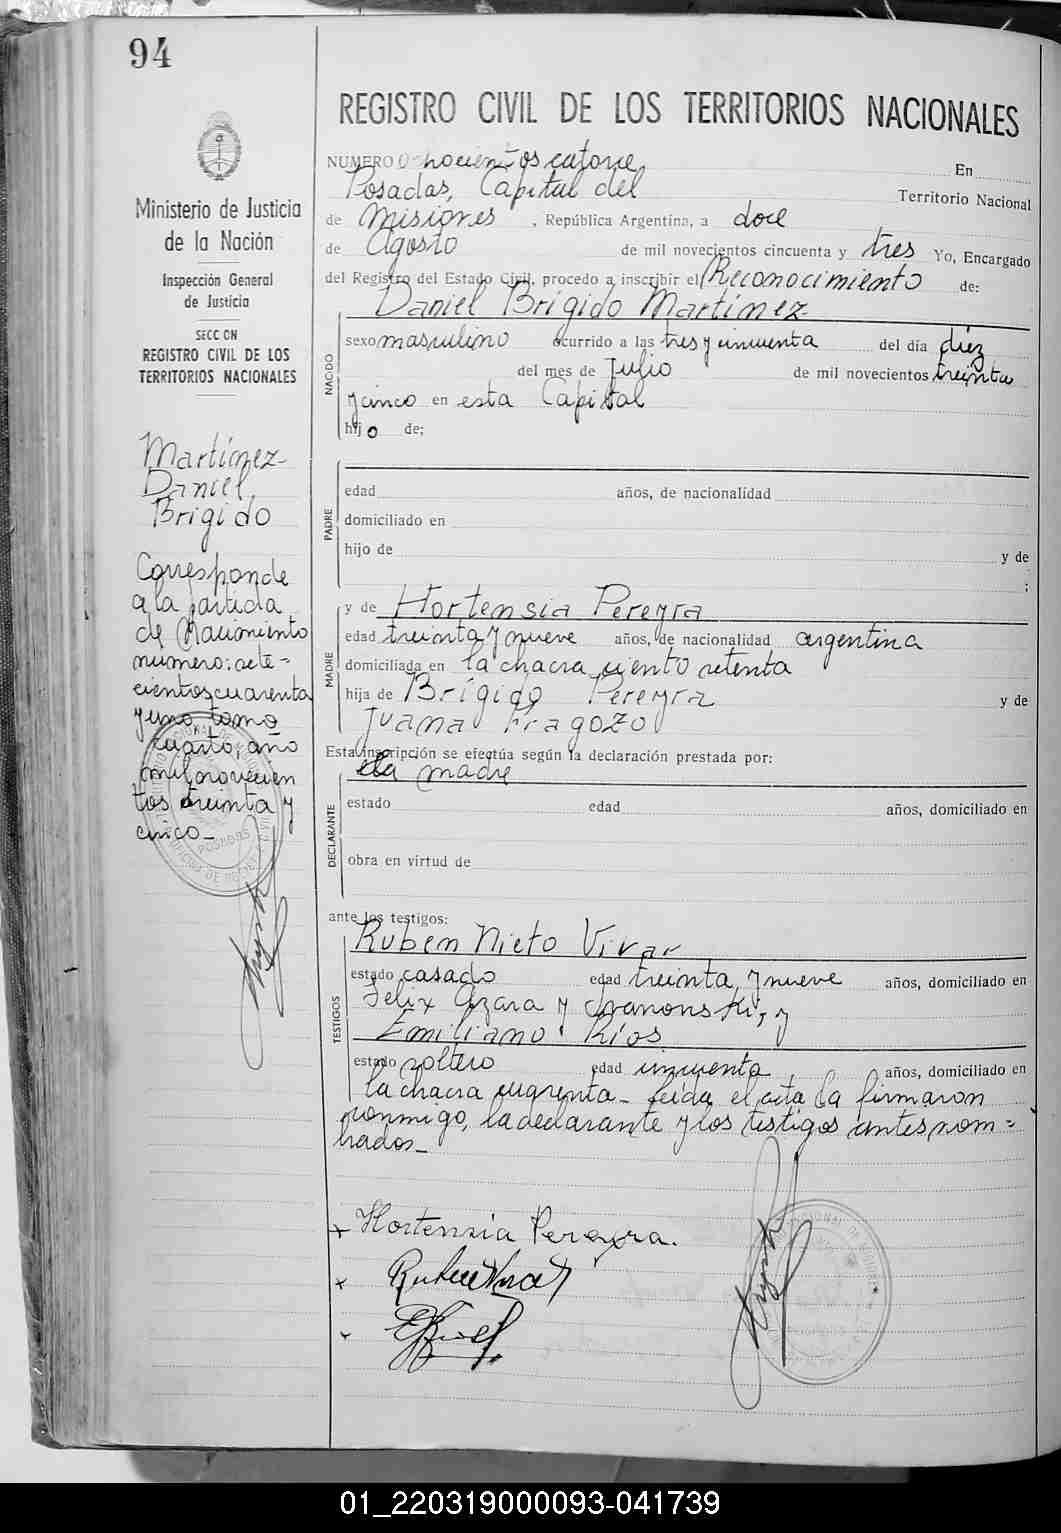 94
REGISTRO CIVIL DE LOS TERRITORIOS NACIONALES
Ministerio de Justicia
de la Nación
Inspección General
de Justicia
SECCION
REGISTRO CIVIL DE LOS
TERRITORIOS NACIONALES
Martínez
Daniel
Brígido
Corresponde
a la partida
de Nacimiento
numero: sete=
cientos cuarenta
y uno, tomo
cuarto, año
mil novecien
tos treinta y
cinco_
POSADAS
NUMERO Ochocientos catorce En
Posadas, Capital del Territorio Nacional
de Misiones, República Argentina, a doce
de Agosto de mil novecientos cincuenta y tres Yo, Encargado
del Registro del Estado Civil, procedo a inscribir el Reconocimiento de:
Daniel Brígido Martínez
NACIDO
sexo masculino ocurrido a las tres y cincuenta del día diez
del mes de Julio de mil novecientos treinta
y cinco en esta Capital
hijo de;
PADRE
edad años, de nacionalidad
domiciliado en
hijo de y de
;
MADRE
y de Hortensia Pereyra
edad treinta y nueve años, de nacionalidad argentina
domiciliada en la chacra ciento setenta
hija de Brígido Pereyra y de
Juana Fragozo
Esta inscripción se efectúa según la declaración prestada por:
la madre
DECLARANTE
estado edad años, domiciliado en
obra en virtud de
ante los testigos:
TESTIGOS
Ruben Nieto Vivar
estado casado edad treinta y nueve años, domiciliado en
Félix Azara y , y
Emiliano Ríos
estado soltero edad cincuenta años, domiciliado en
la chacra cuarenta_ Leída el acta la firmaron
conmigo, la declarante y los testigos antes nom=
brados_
x Hortensia Pereyra.
x
01_220319000093-041739